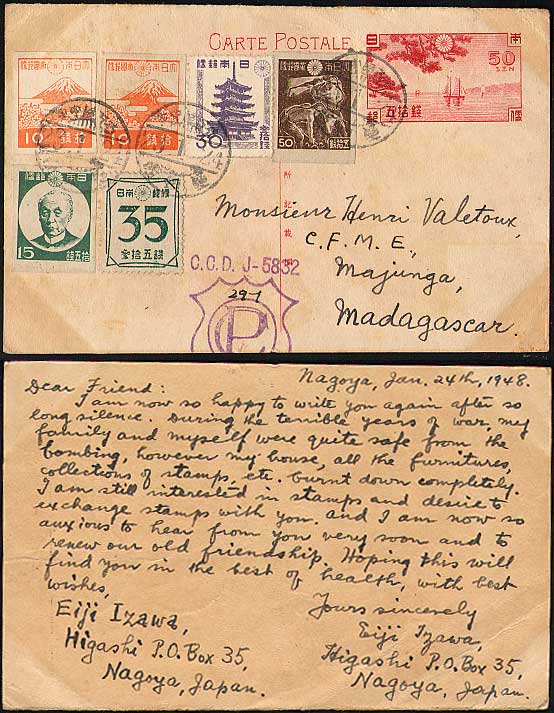 CARTE POSTALE
日本郵便
50
SEN
五拾錢
10
拾錢
10
拾錢
30
50
15
日本郵便
35
參拾五錢
所
記
載
Monsieur Henri Valetoux,
C.F.M.E,
Majunga,
Madagascar.
C.C.D. J-5832
29-1
CP
Nagoya, Jan. 24th, 1948.
Dear Friend:
I am now so happy to write you again after so
long silence. During the terrible years of war, my
family and myself were quite safe from the
bombing, however my house, all the furnitures,
collections of stamps, etc. burnt down completely.
I am still interested in stamps and desire to
exchange stamps with you. and I am now so
auxious to hear from you very soon and to
renew our old friendship. Hoping this will
find you in the best of health, with best
wishes,
Yours sincerely
Eiji Izawa,
Higashi P.O. Box 35,
Nagoya, Japan.
Eiji Izawa,
Higashi P.O. Box 35,
Nagoya, Japan.